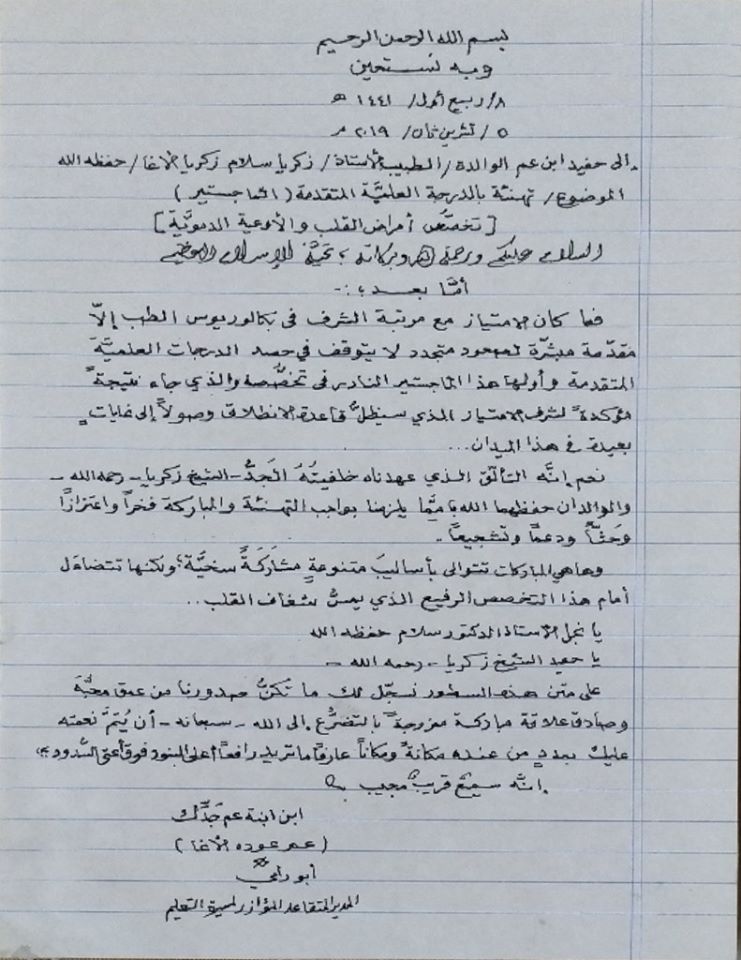 بسم الله الرحمن الرحيم
وبه نستعين
٨/ ربيع أول/ ١٤٤١ هـ
٥ / تشرين ثان/ ٢٠١٩ مـ
إلى حفيد ابن عم الوالدة/ الطبيب الأستاذ/ زكريا سلام زكريا الأغا/ حفظه الله
الموضوع/ تهنئة بالدرجة العلميَّة المتقدمة (الماجستير)
[تخصُّص أمراض القلب والأوعية الدمويَّة]
السلام عليكم ورحمة الله وبركاته؛ تحيَّة الإسلام
أمَّا بعد؛:-
فما كان الامتياز مع مرتبة الشرف في بكالوريوس الطب إلاَّ
مقدّمة مبشّرة لصعود متجدد لا يتوقف في حصد الدرجات العلميَّة
المتقدمة وأولها هذا الماجستير النادر في تخصُّصه والذي جاء نتيجةً
مؤكدةً لشرف الامتياز الذي سيظلُّ قاعدة الانطلاق وصولاً إلى غاياتٍ
بعيدة في هذا الميدان...
نعم إنَّه التألّق الذي عهدناه خلفيتُهُ الجَدُّ - الشيخ زكريا - رحمه الله -
والوالدان حفظهما الله؛ ممَّا يلزمنا بواجب التهنئة والمباركة فخراً واعتزازاً
وحَثّاً ودعماً وتشجيعاً.
وها هي المباركات تتوالى بأساليبَ متنوعةٍ مشاركةً سخيَّة؛ ولكنها تتضاءل
أمام هذا التخصص الرفيع الذي يمسُّ شغاف القلب..
يا نجل الأستاذ الدكتور سلام حفظه الله
يا حفيد الشيخ زكريا - رحمه الله -
على متن هذه السطور نسجّل لك ما تكنُّ صدورنا من عمق محبَّة
وصادق علاقة مباركة ممزوجةً بالتضرُّع إلى الله - سبحانه - أن يُتمَّ نعمته
عليك بمددٍ من عنده مكانةً ومكاناً عارفاً ما تريد رافعاً أعلى البنود فوق أعتى السُّدود؛
إنَّه سميعٌ قريبٌ مجيب
ابن ابنة عم جَدِّك
(عمر عوده الأغا)
أبو رامي
المدير المتقاعد المؤازر لمسيرة التعليم